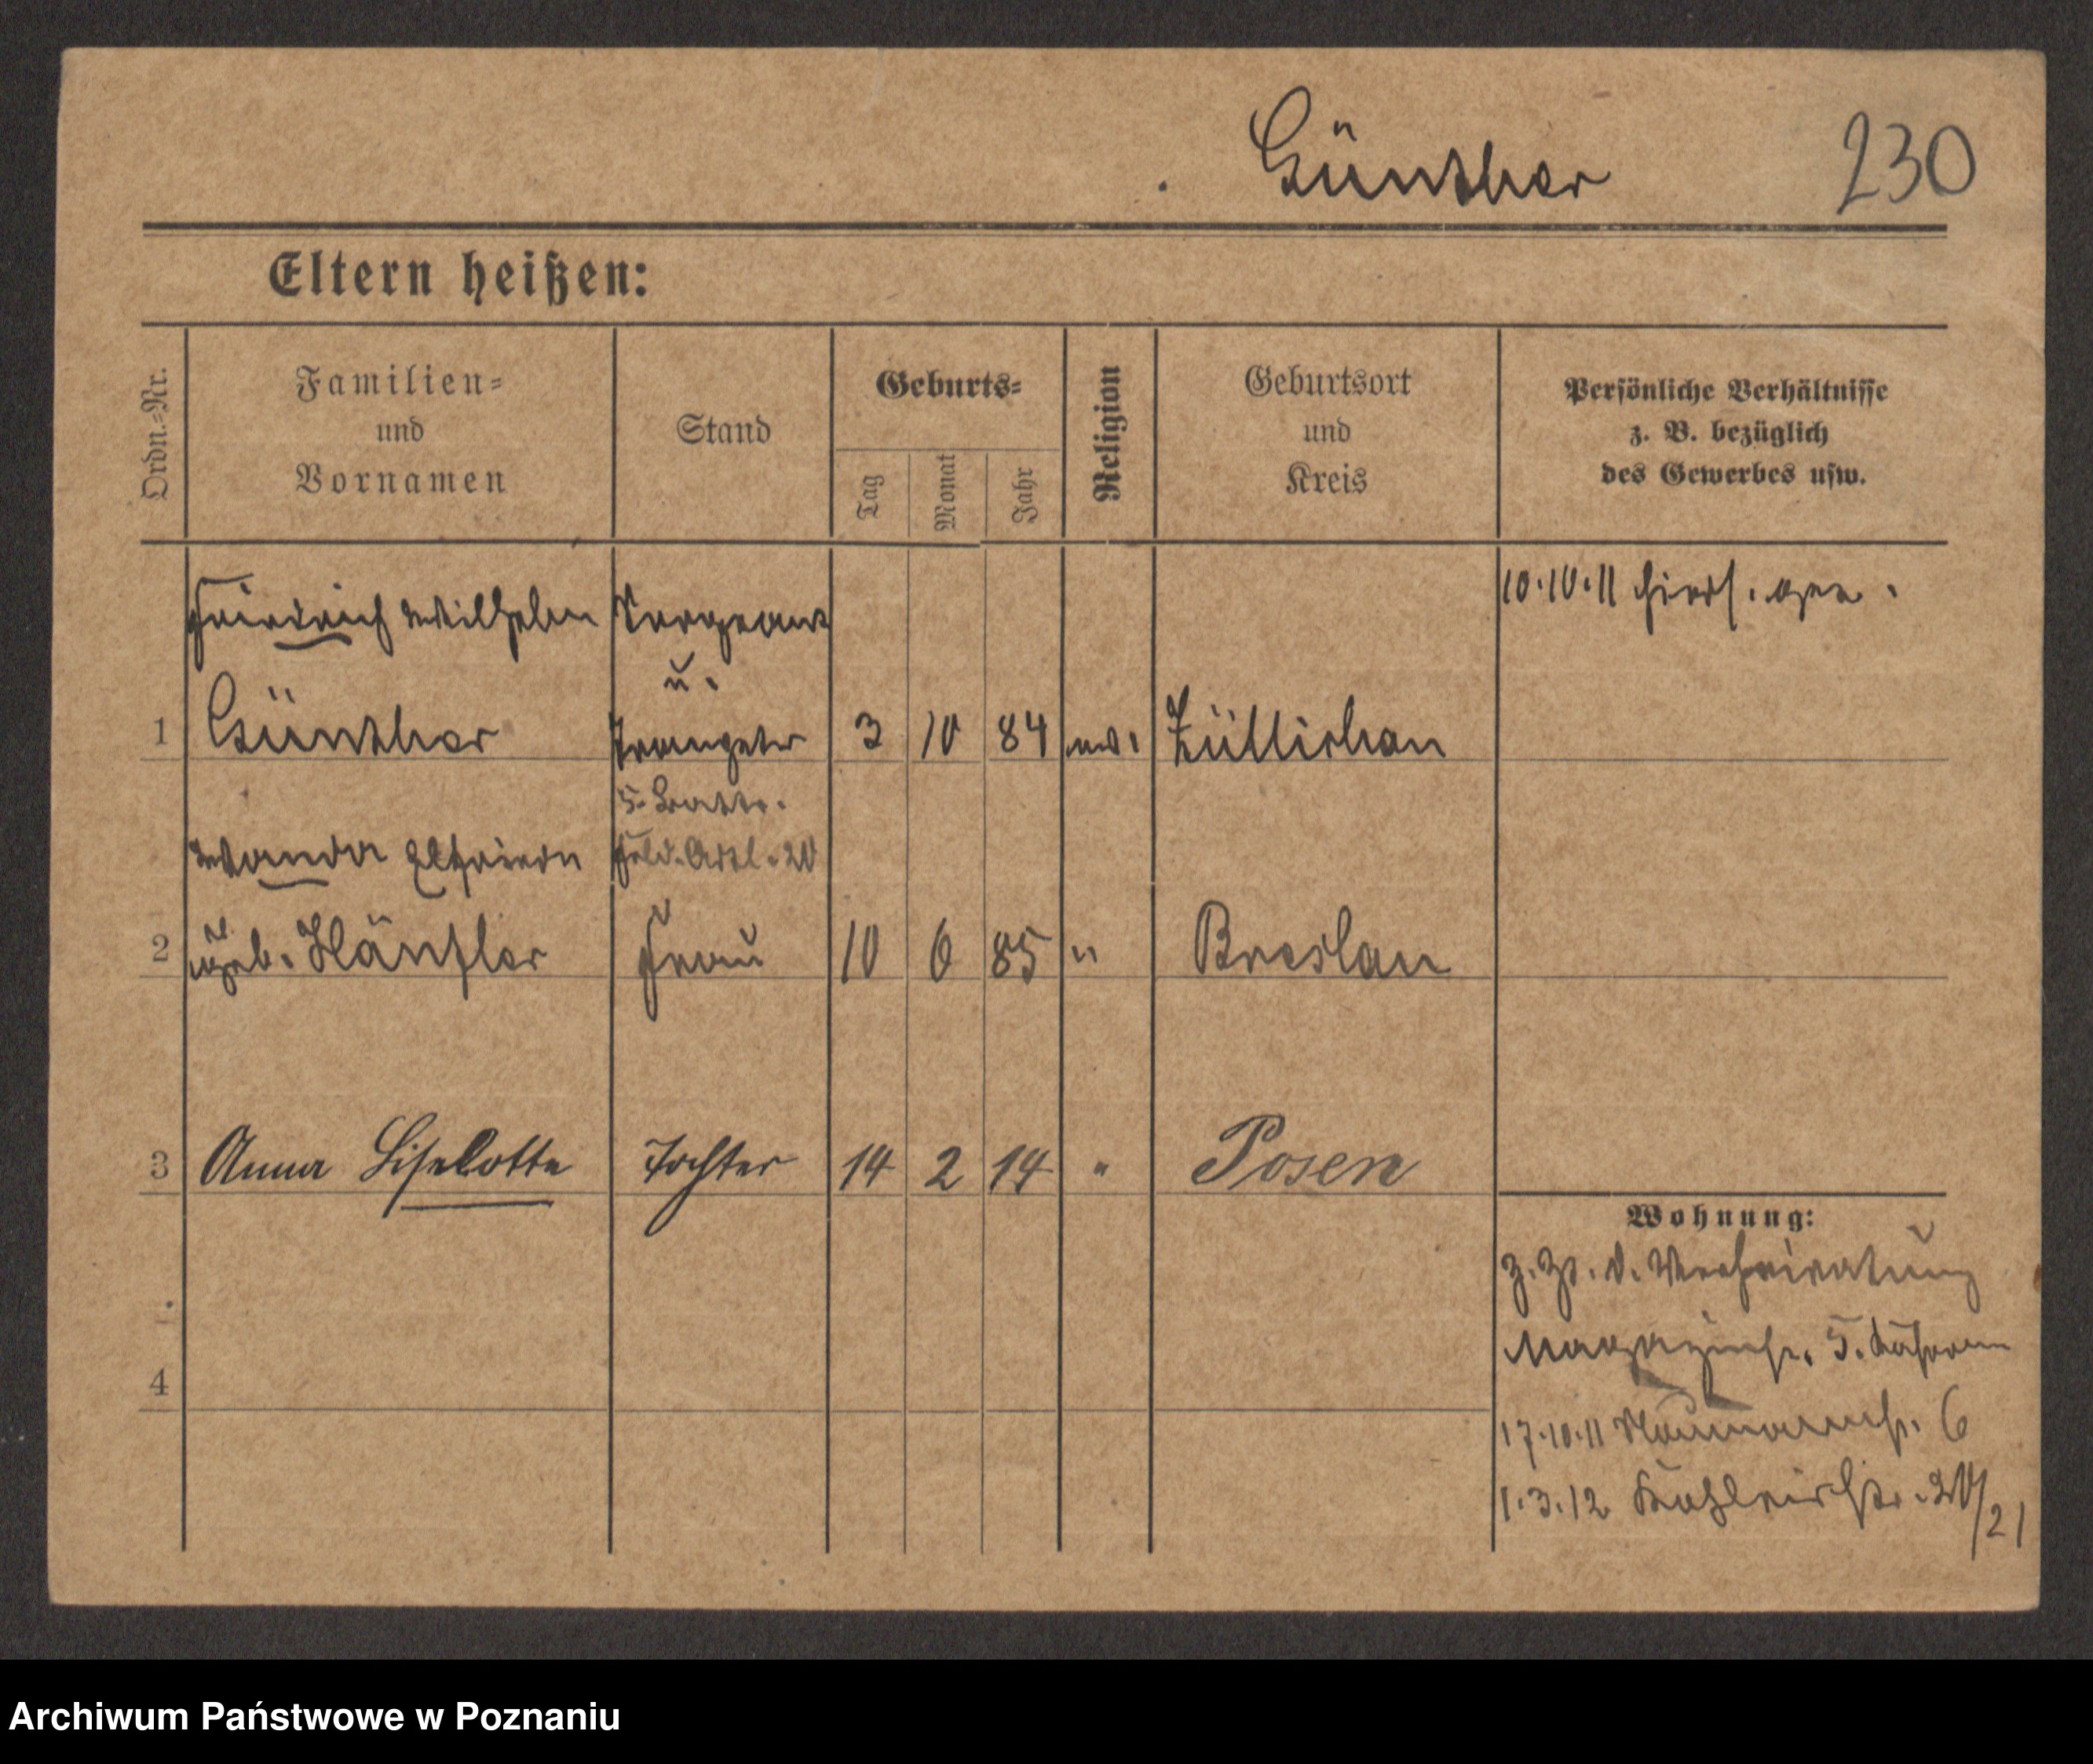 Günther 230
Eltern heißen:
Ordn.=Nr.
Familien=
und
Vornamen
Stand
Geburts=
Tag
Monat
Jahr
Religion
Geburtsort
und
Kreis
Persönliche Verhältnisse
z. B. bezüglich
des Gewerbes usw.
Friedrich Wilhelm Sergeant 10.10.11
u.
1 Günther Trompeter 3 10 84 ev. Züllichau
5. Battr.
Wanda Elfriede Feld. Artl. 20
2 geb. Hänsler Frau 10 6 85 " Breslau
3 Anna Liselotte Tochter 14 2 14 " Posen
Wohnung:
z. Zt. d. Verheiratung
Magazinstr. 5.
4
17.10.11 Naumannstr. 6
1.3.12 20/21
Archiwum Państwowe w Poznaniu